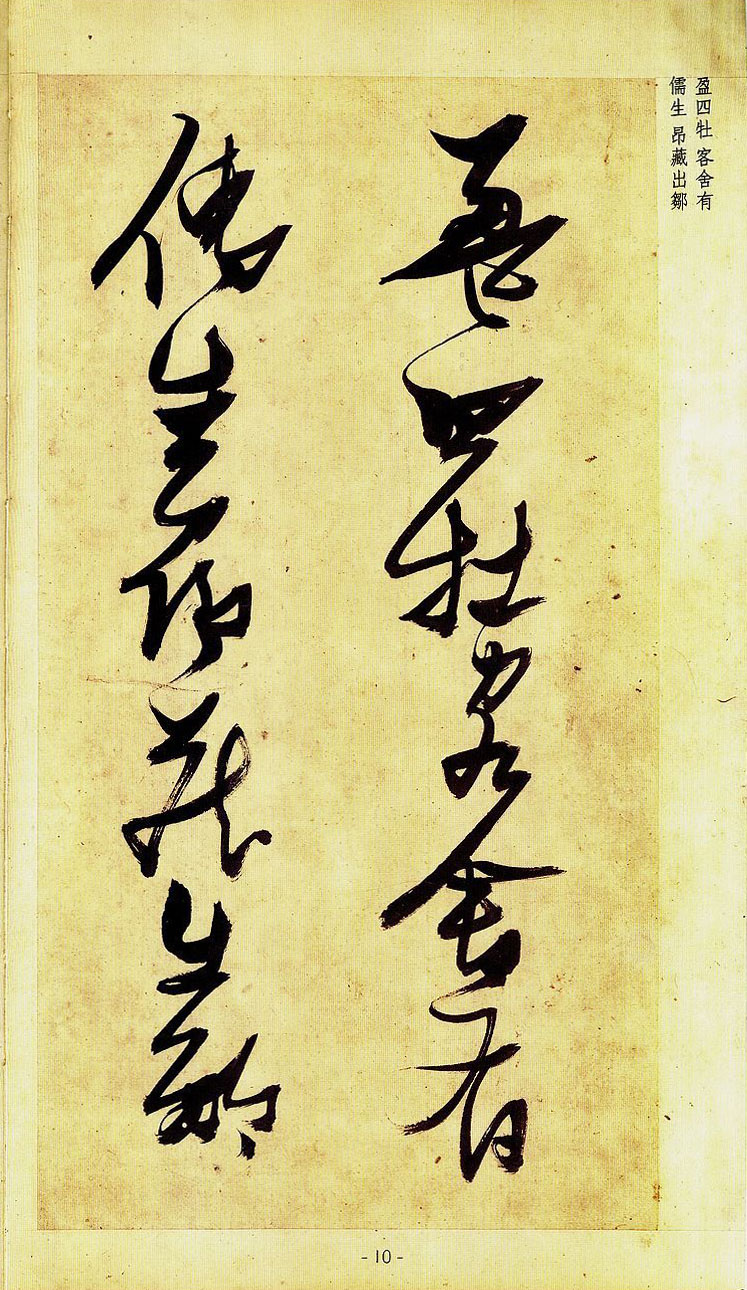 盈四牡 客舍有
儒生 昂藏出鄒
盈四牡客舍有
儒生昂藏出鄒
- 10 -